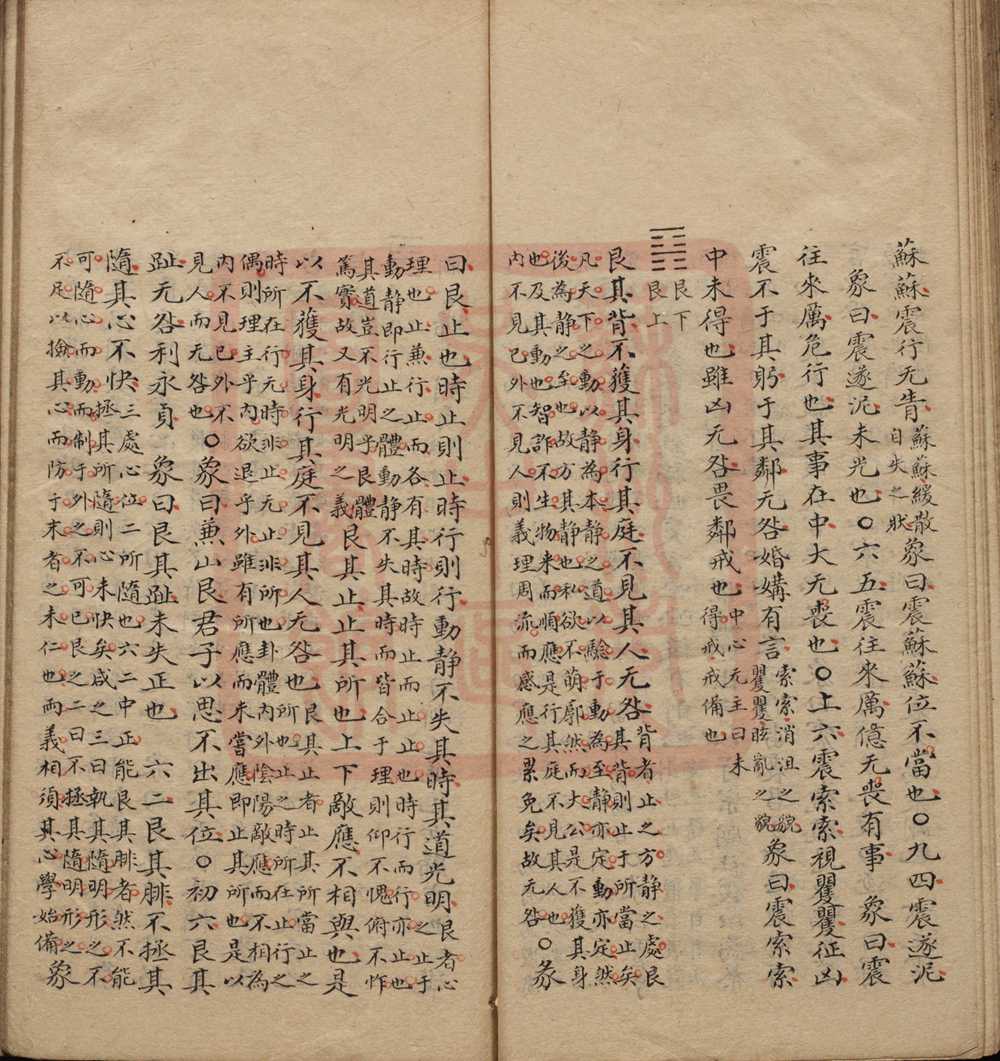 蘇蘇震行无眚蘇蘇緩散自失之狀象曰震蘇蘇位不當也○九四震遂泥
象曰震遂泥未光也○六五震往來厲億无喪有事 象曰震
往來厲危行也其事在中大无喪也○上六震索索視矍矍征凶
震不于其躬于其鄰无咎婚媾有言索索消沮之貌矍矍眩亂之貌象曰震索索
中未得也雖凶无咎畏鄰戒也中心无主曰未得戒戒備也
䷳艮下艮上
艮其背不獲其身行其庭不見其人无咎背者止之方靜之處艮其背則止于所當止矣
凡天下之動以靜為本靜之道以驗于動為至靜亦定動亦定然
後為靜之至也故方其靜也私欲不萌廓然而大公是不獲其身
也及其動也智詐不生物來而順應是行其庭不見其人也
內不見己外不見人則義理周流而感應之累免矣故无咎○彖
曰艮止也時止則止時行則行動靜不失其時其道光明艮者心之止于
理也止兼行止而各有其時故時止而止止也時行而行亦止也
動靜即行止之體動靜不失其時而皆合于理則仰不愧俯不怍
其道豈不光明乎艮體篤實故又有光明之義艮其止止其所也上下敵應不相與也是
以不獲其身行其庭不見其人无咎也艮其止者止其所當止之所也止之時所在止行之
時所在行无時非止无止非所也卦體內外陰陽敵應而不相為
偶則理主乎內欲退乎外雖有所應而未嘗應即止其所也是以
內不見己外不見人而无咎也○象曰兼山艮君子以思不出其位○初六艮其
趾无咎利永貞 象曰艮其趾未失正也 六二艮其腓不拯其
隨其心不快三處心位二所隨也六二中正能艮其腓者然不能拯其所隨則心未快矣咸之三曰執其隨明形之不
可隨心而動而制于外之不可已艮之二曰不拯其隨明形之
不足以撿其心而防于末者之未仁也兩義相須其心學始備象